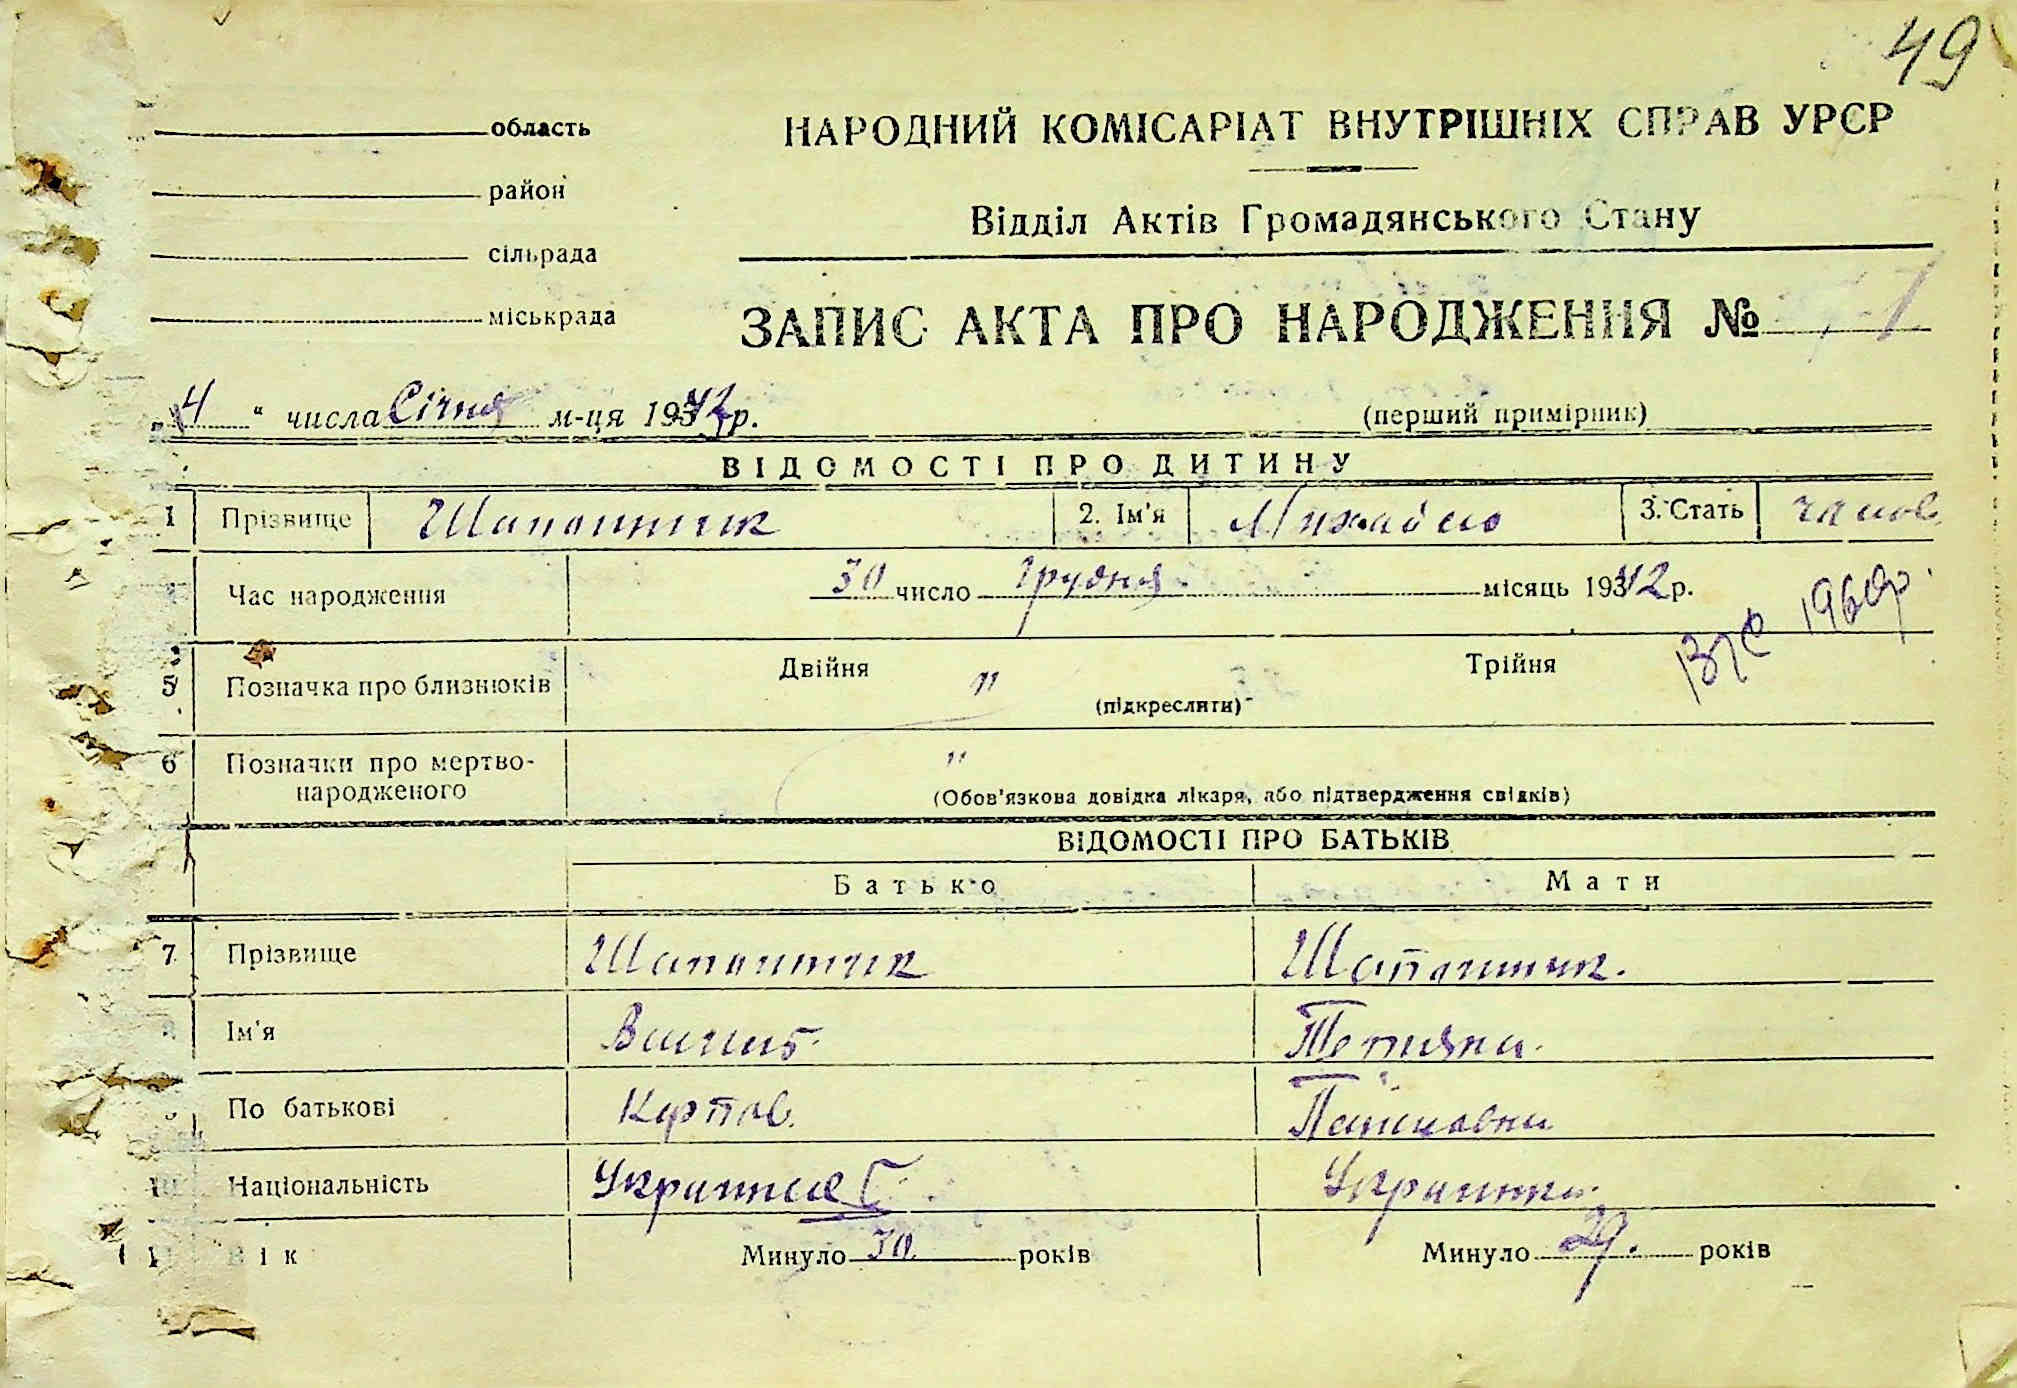 49
область
НАРОДНИЙ КОМІСАРІАТ ВНУТРІШНІХ СПРАВ УРСР
район
Відділ Актів Громадянського Стану
сільрада
міськрада
ЗАПИС АКТА ПРО НАРОДЖЕННЯ №
4 " числа Січня м-ця 1942 р.
(перший примірник)
ВІДОМОСТІ ПРО ДИТИНУ
1 Прізвище 2. Ім'я Михайло 3. Стать чолов
Час народження 30 число Грудня місяць 1942 р.
1960р.
5 Позначка про близнюків Двійня " Трійня
(підкреслити)
6 Позначки про мертво-
народженого "
(Обов'язкова довідка лікаря, або підтвердження свідків)
ВІДОМОСТІ ПРО БАТЬКІВ
Батько Мати
7 Прізвище
Ім'я Тетяна
По батькові Карпов.
10 Національність Українка
Вік Минуло 30 років Минуло 29. років